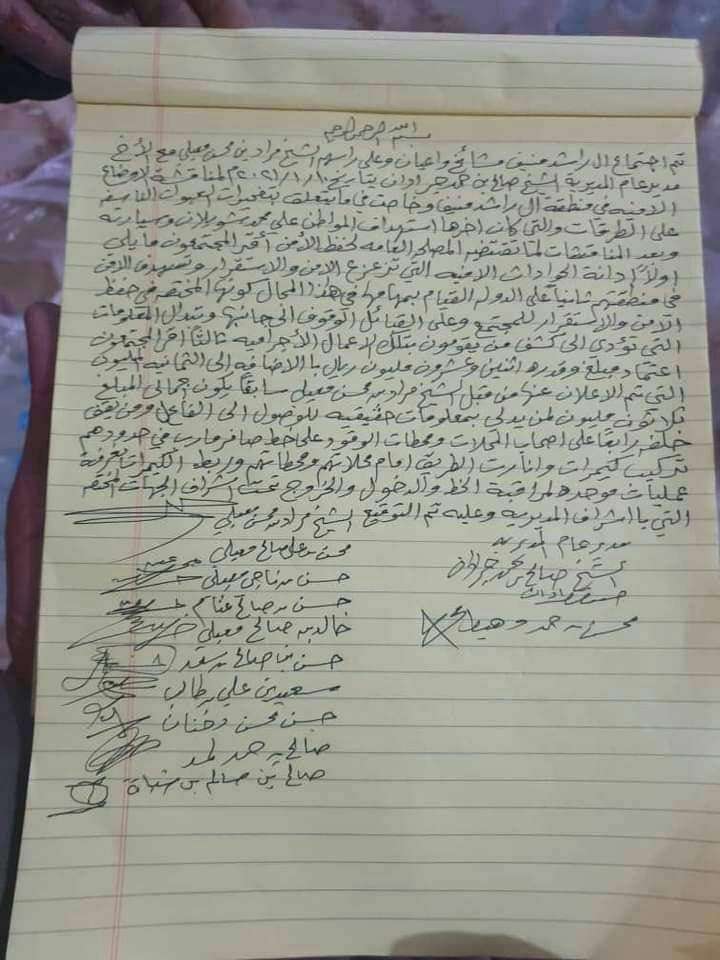 بسم الله الرحمن الرحيم
تم اجتماع ال راشد منيف مشائخ واعيان وعلى راسهم الشيخ مراد بن محسن معيلي مع الأخ
مدير عام المديرية الشيخ صالح بن حمد جرادان بتاريخ ٢٠٢١/١/١٠ لمناقشة الاوضاع
الامنيه في منطقة آل راشد منيف وخاصتن في ما يتعلق بتفجيرات العبوات الناسفه
على الطرقات والتي كان اخرها استهداف المواطن علي محمد شويلان وسيارته
وبعد المناقشات لما تقتضيه المصلحه العامه لحفظ الأمن أقر المجتمعون ما يلي
اولاً إدانة الحوادث الامنيه التي تزعزع الامن والاستقرار وتستهدف الامن
في منطقتهم ثانياً على الدوله القيام بمهامها في هذا المجال كونها المختصه في حفظ
الامن والاستقرار للمجتمع وعلى القبائل الوقوف الى جانبها وتبدل المعلومات
التي تؤدي الى كشف من يقومون بتلك الاعمال الأجراميه ثالثاً اقر المجتمعون
اعتماد مبلغ وقدره اثنين وعشرون مليون ريال بالاضافه إلى الثمانيه المليون
التي تم الاعلان عنها من قبل الشيخ مراد بن محسن معيلي سابقاً يكون اجمالي المبلغ
ثلاثون مليون لمن يدلي بمعلومات حقيقيه للوصول الى الفاعل ومن يقف
خلفه رابعاً على اصحاب المحلات ومحطات الوقود على خط صافر مارب في حدودهم
تركيب كيمرات وانارت الطريق امام محلاتهم ومحطاتهم وربط الكيمرات بغرفة
عمليات موحده لمراقبة الخط والدخول والخروج تحت اشراف الجهات المختصه
التي با اشراف المديريه وعليه تم التوقيع
الشيخ مراد بن محسن معيلي
مدير عام المديريه
محسن بن علي صالح معيلي
الشيخ صالح بن حمد جرادان
حسن بن ناجي معيلي
حسن بن صالح غنائم
خالد بن صالح معيلي
محسن بن حمد وهيط
حسن بن صالح بن سعد
سعيد بن علي بن طالب
حسن محسن دخنان
صالح بن حمد لحمد
صالح بن سالم بن شباة